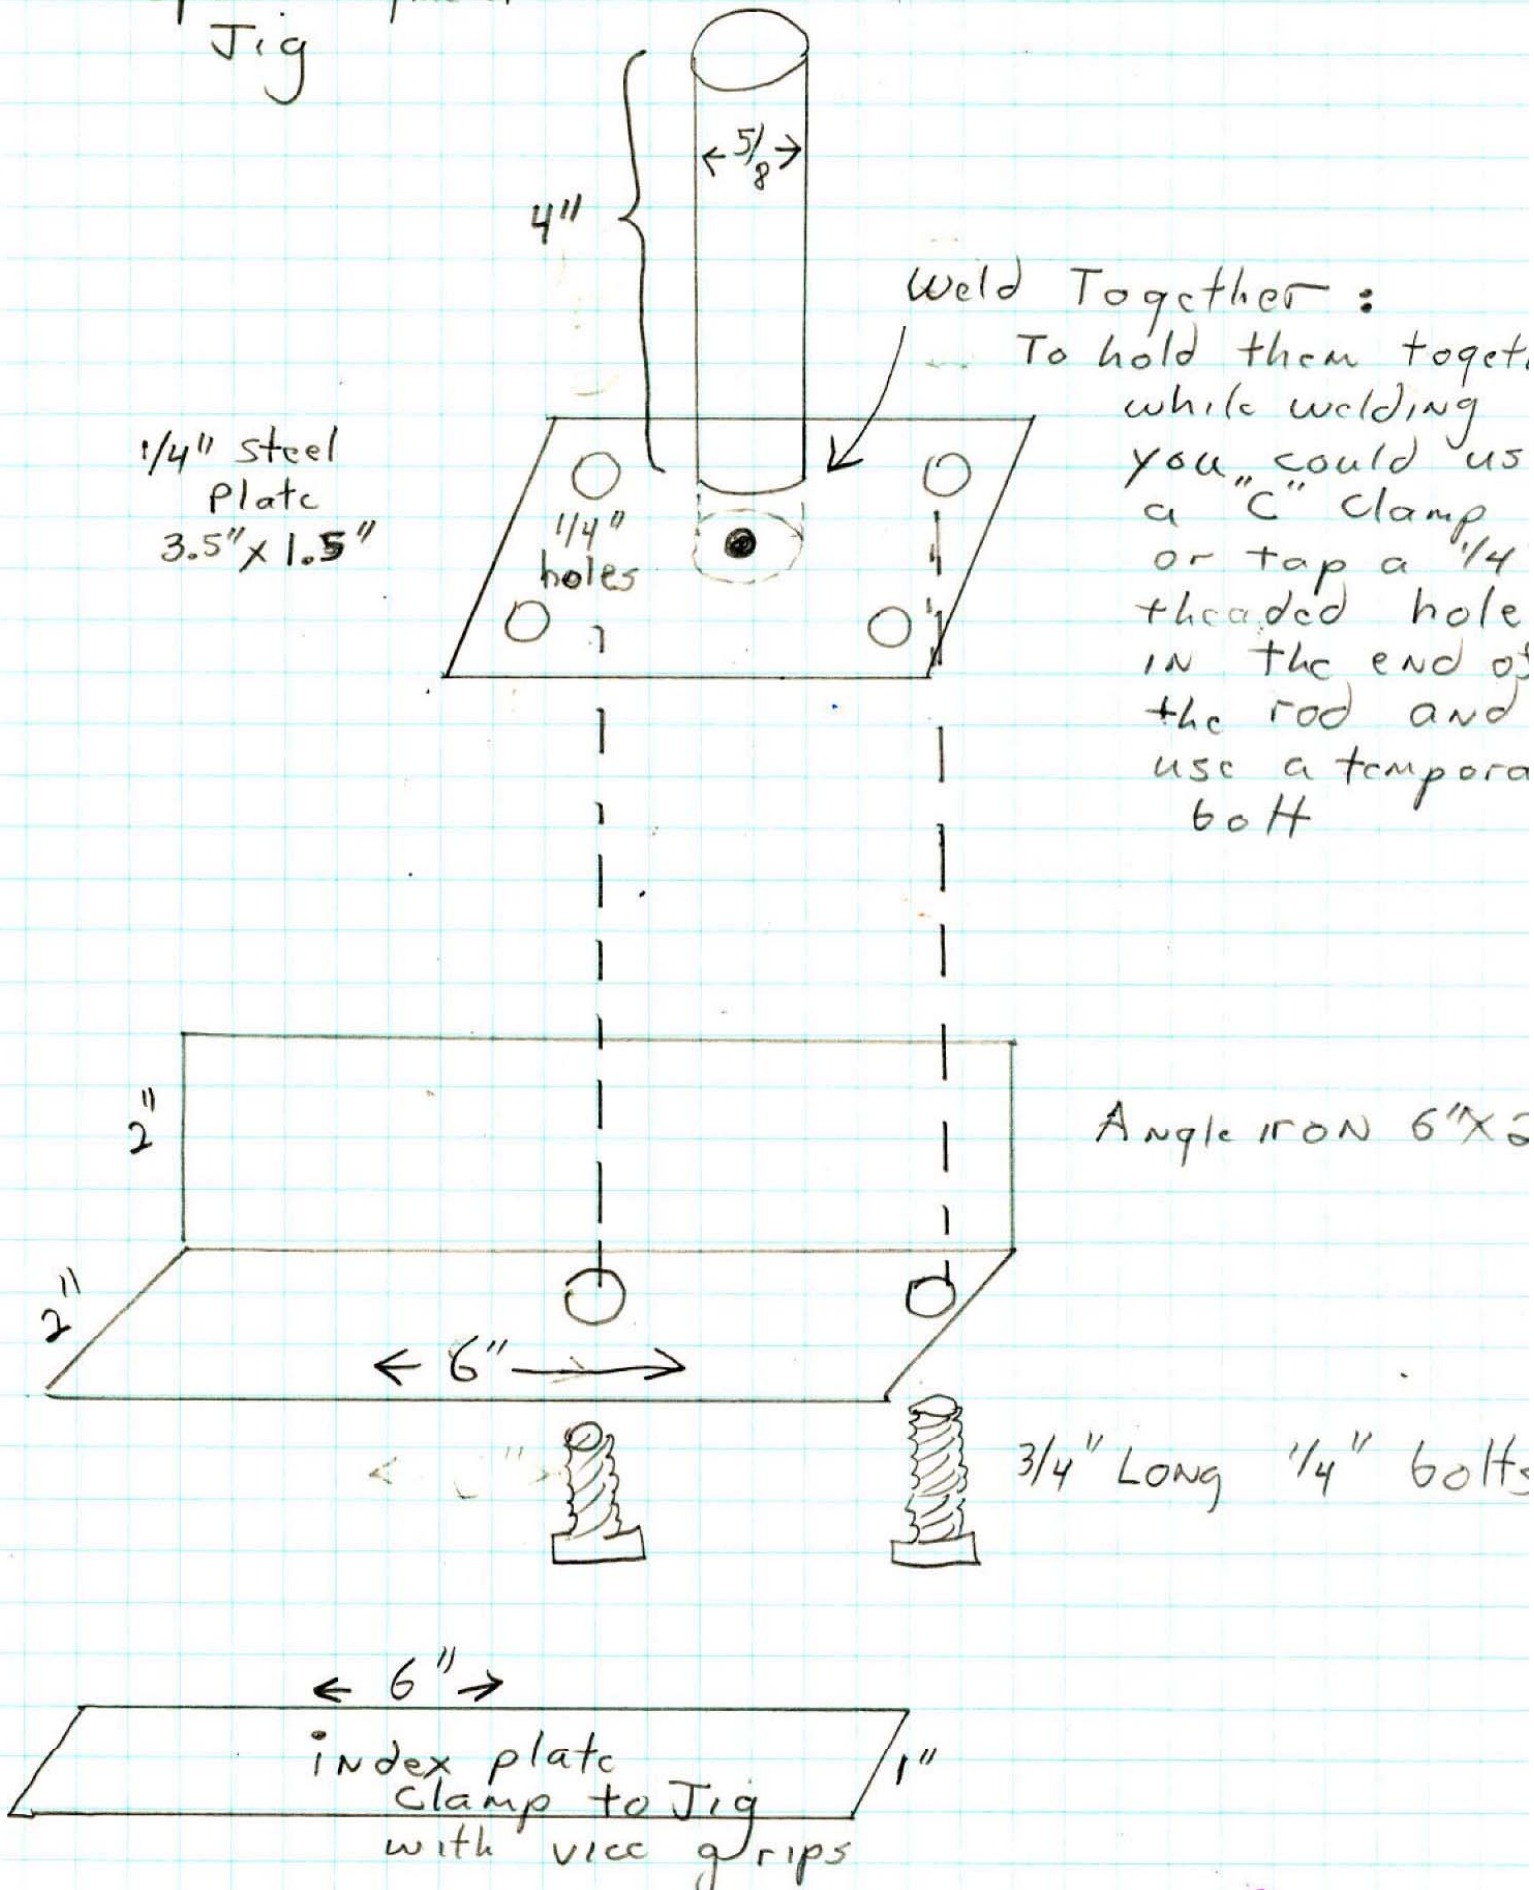 Jig
5/8
4"
Weld Together :
To hold them togeth
while welding
you could us
a "C" clamp
or tap a 1/4
theaded hole
in the end of
the rod and
use a tempora
bolt
1/4" steel
Plate
3.5" x 1.5"
1/4"
holes
2"
Angle iron 6"x2
2"
← 6" →
3/4" Long 1/4" bolts
← 6" →
index plate
clamp to Jig
with vice grips
1"